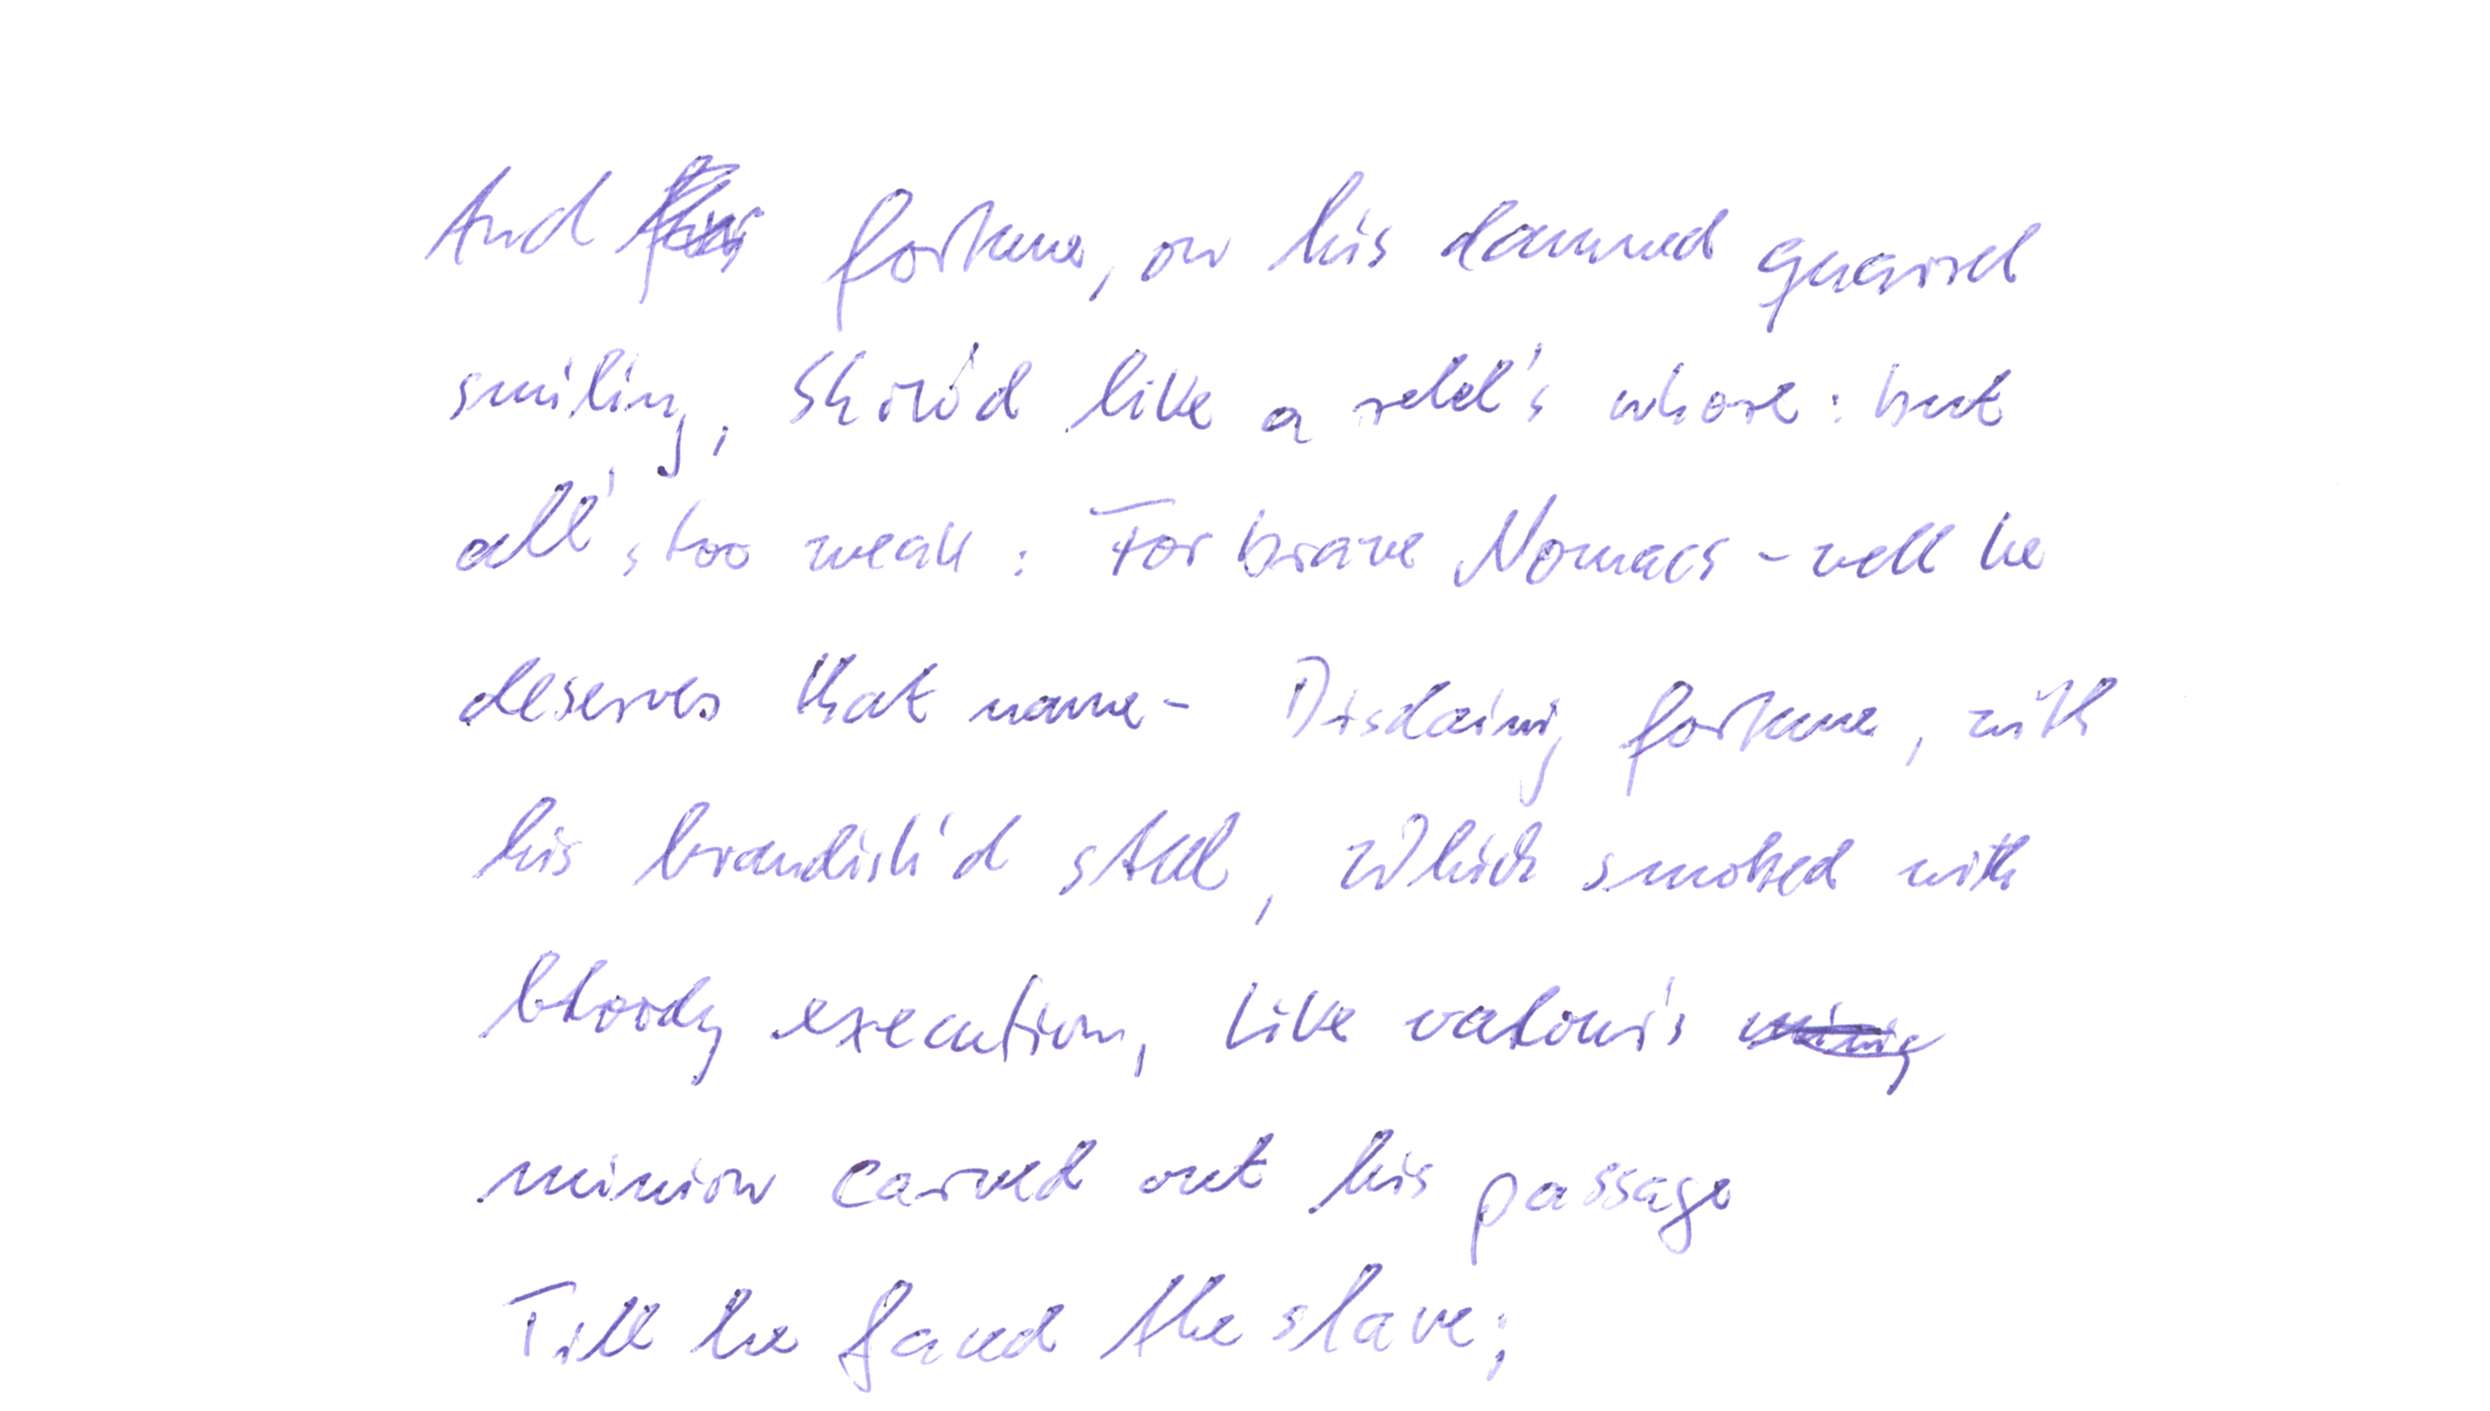 And fortune, on his damned quarrel
smiling, Show'd like a rebel's whore: but
all's too weak: For brave Nomacs - well he
deserves that name - Disdaining fortune, with
his brandish'd steel, Which smoked with
bloody execution, Like valour's
minion carved out his passage
Till he faced the slave;